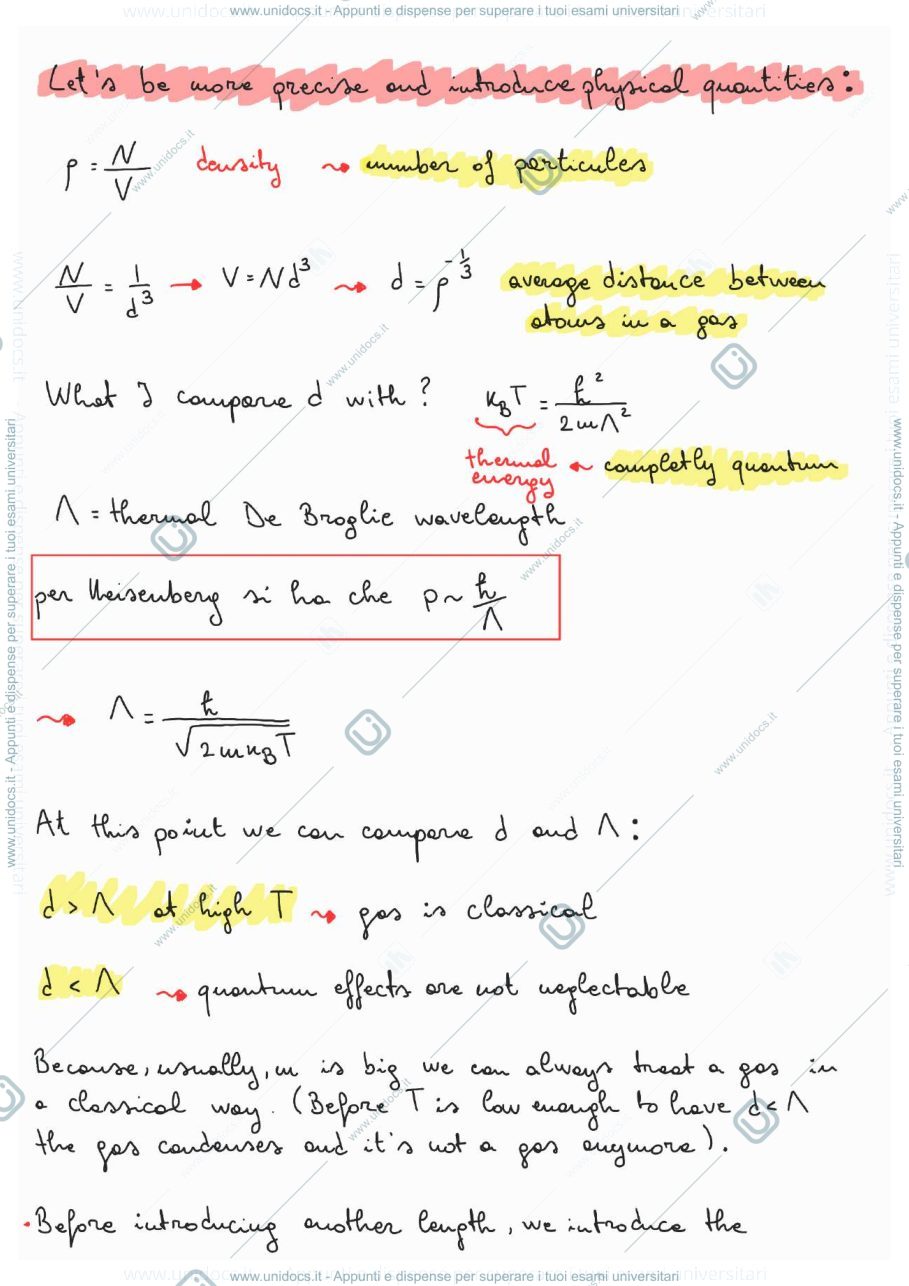 www.unidocs.it - Appunti e dispense per superare i tuoi esami universitari
Let's be more precise and introduce physical quantities:
ρ = N/V density ⇝ number of particules
N/V = 1/d³ → V = Nd³ ⇝ d = ρ^(-1/3) average distance between
atoms in a gas
What I compare d with? K_B T = ℏ²/2mΛ²
thermal energy ← completly quantum
Λ = thermal De Broglie wavelength
per Heisenberg si ha che p ~ ℏ/Λ
⇝ Λ = ℏ/√(2mK_B T)
At this point we can compare d and Λ:
d > Λ at high T ⇝ gas is classical
d < Λ ⇝ quantum effects are not neglectable
Because, usually, m is big we can always treat a gas in
a classical way. (Before T is low enough to have d < Λ
the gas condenses and it's not a gas anymore).
• Before introducing another length, we introduce the
www.unidocs.it - Appunti e dispense per superare i tuoi esami universitari